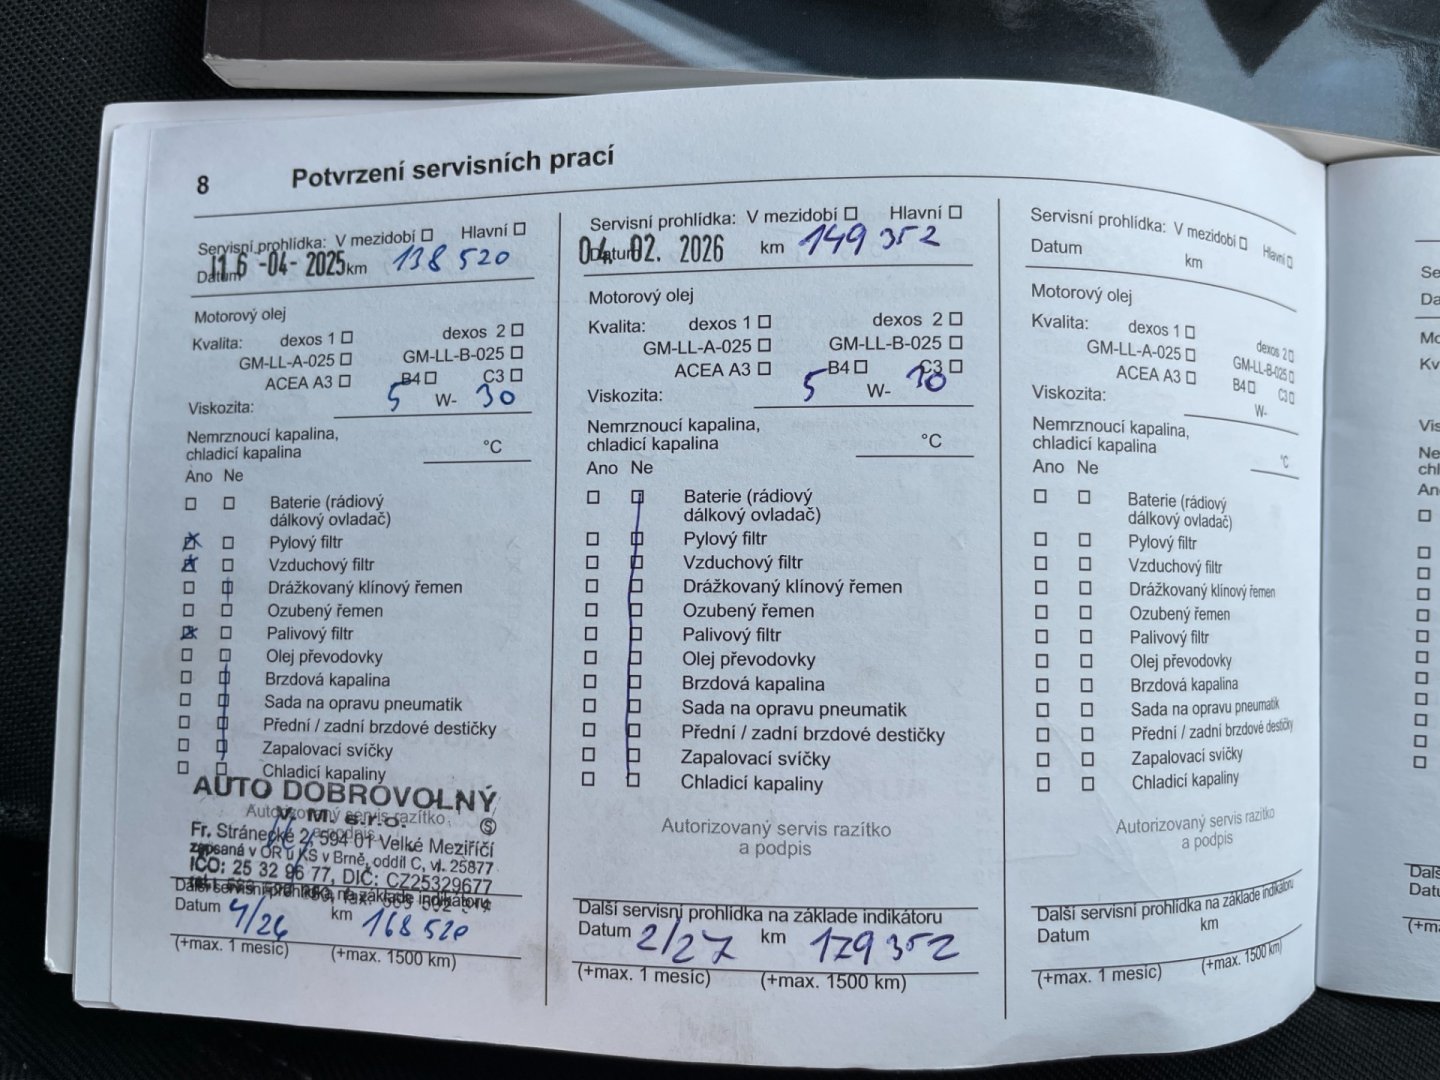 8 Potvrzení servisních prací
Servisní prohlídka: V mezidobí Hlavní
Datum 16 -04- 2025 km 138 520
Motorový olej
Kvalita: dexos 1 dexos 2
GM-LL-A-025 GM-LL-B-025
ACEA A3 B4 C3
Viskozita: 5 W- 30
Nemrznoucí kapalina,
chladicí kapalina °C
Ano Ne
Baterie (rádiový
dálkový ovladač)
Pylový filtr
Vzduchový filtr
Drážkovaný klínový řemen
Ozubený řemen
Palivový filtr
Olej převodovky
Brzdová kapalina
Sada na opravu pneumatik
Přední / zadní brzdové destičky
Zapalovací svíčky
Chladicí kapaliny
AUTO DOBROVOLNÝ
Autorizovaný servis razítko
V. M. s.r.o.
a podpis
Fr. Stránecké 2, 594 01 Velké Meziříčí
zapsaná v OR u KS v Brně, oddíl C, vl. 25877
IČO: 25 32 96 77, DIČ: CZ25329677
Další servisní prohlídka na základe indikátoru
Datum 4/26 km 168 520
(+max. 1 mesíc) (+max. 1500 km)
Servisní prohlídka: V mezidobí Hlavní
Datum 04. 02. 2026 km 149 352
Motorový olej
Kvalita: dexos 1 dexos 2
GM-LL-A-025 GM-LL-B-025
ACEA A3 B4 C3
Viskozita: 5 W- 30
Nemrznoucí kapalina,
chladicí kapalina °C
Ano Ne
Baterie (rádiový
dálkový ovladač)
Pylový filtr
Vzduchový filtr
Drážkovaný klínový řemen
Ozubený řemen
Palivový filtr
Olej převodovky
Brzdová kapalina
Sada na opravu pneumatik
Přední / zadní brzdové destičky
Zapalovací svíčky
Chladicí kapaliny
Autorizovaný servis razítko
a podpis
Další servisní prohlídka na základe indikátoru
Datum 2/27 km 179 352
(+max. 1 mesíc) (+max. 1500 km)
Servisní prohlídka: V mezidobí Hlavní
Datum km
Motorový olej
Kvalita: dexos 1 dexos 2
GM-LL-A-025 GM-LL-B-025
ACEA A3 B4 C3
Viskozita: W-
Nemrznoucí kapalina,
chladicí kapalina °C
Ano Ne
Baterie (rádiový
dálkový ovladač)
Pylový filtr
Vzduchový filtr
Drážkovaný klínový řemen
Ozubený řemen
Palivový filtr
Olej převodovky
Brzdová kapalina
Sada na opravu pneumatik
Přední / zadní brzdové destičky
Zapalovací svíčky
Chladicí kapaliny
Autorizovaný servis razítko
a podpis
Další servisní prohlídka na základe indikátoru
Datum km
(+max. 1 mesíc) (+max. 1500 km)